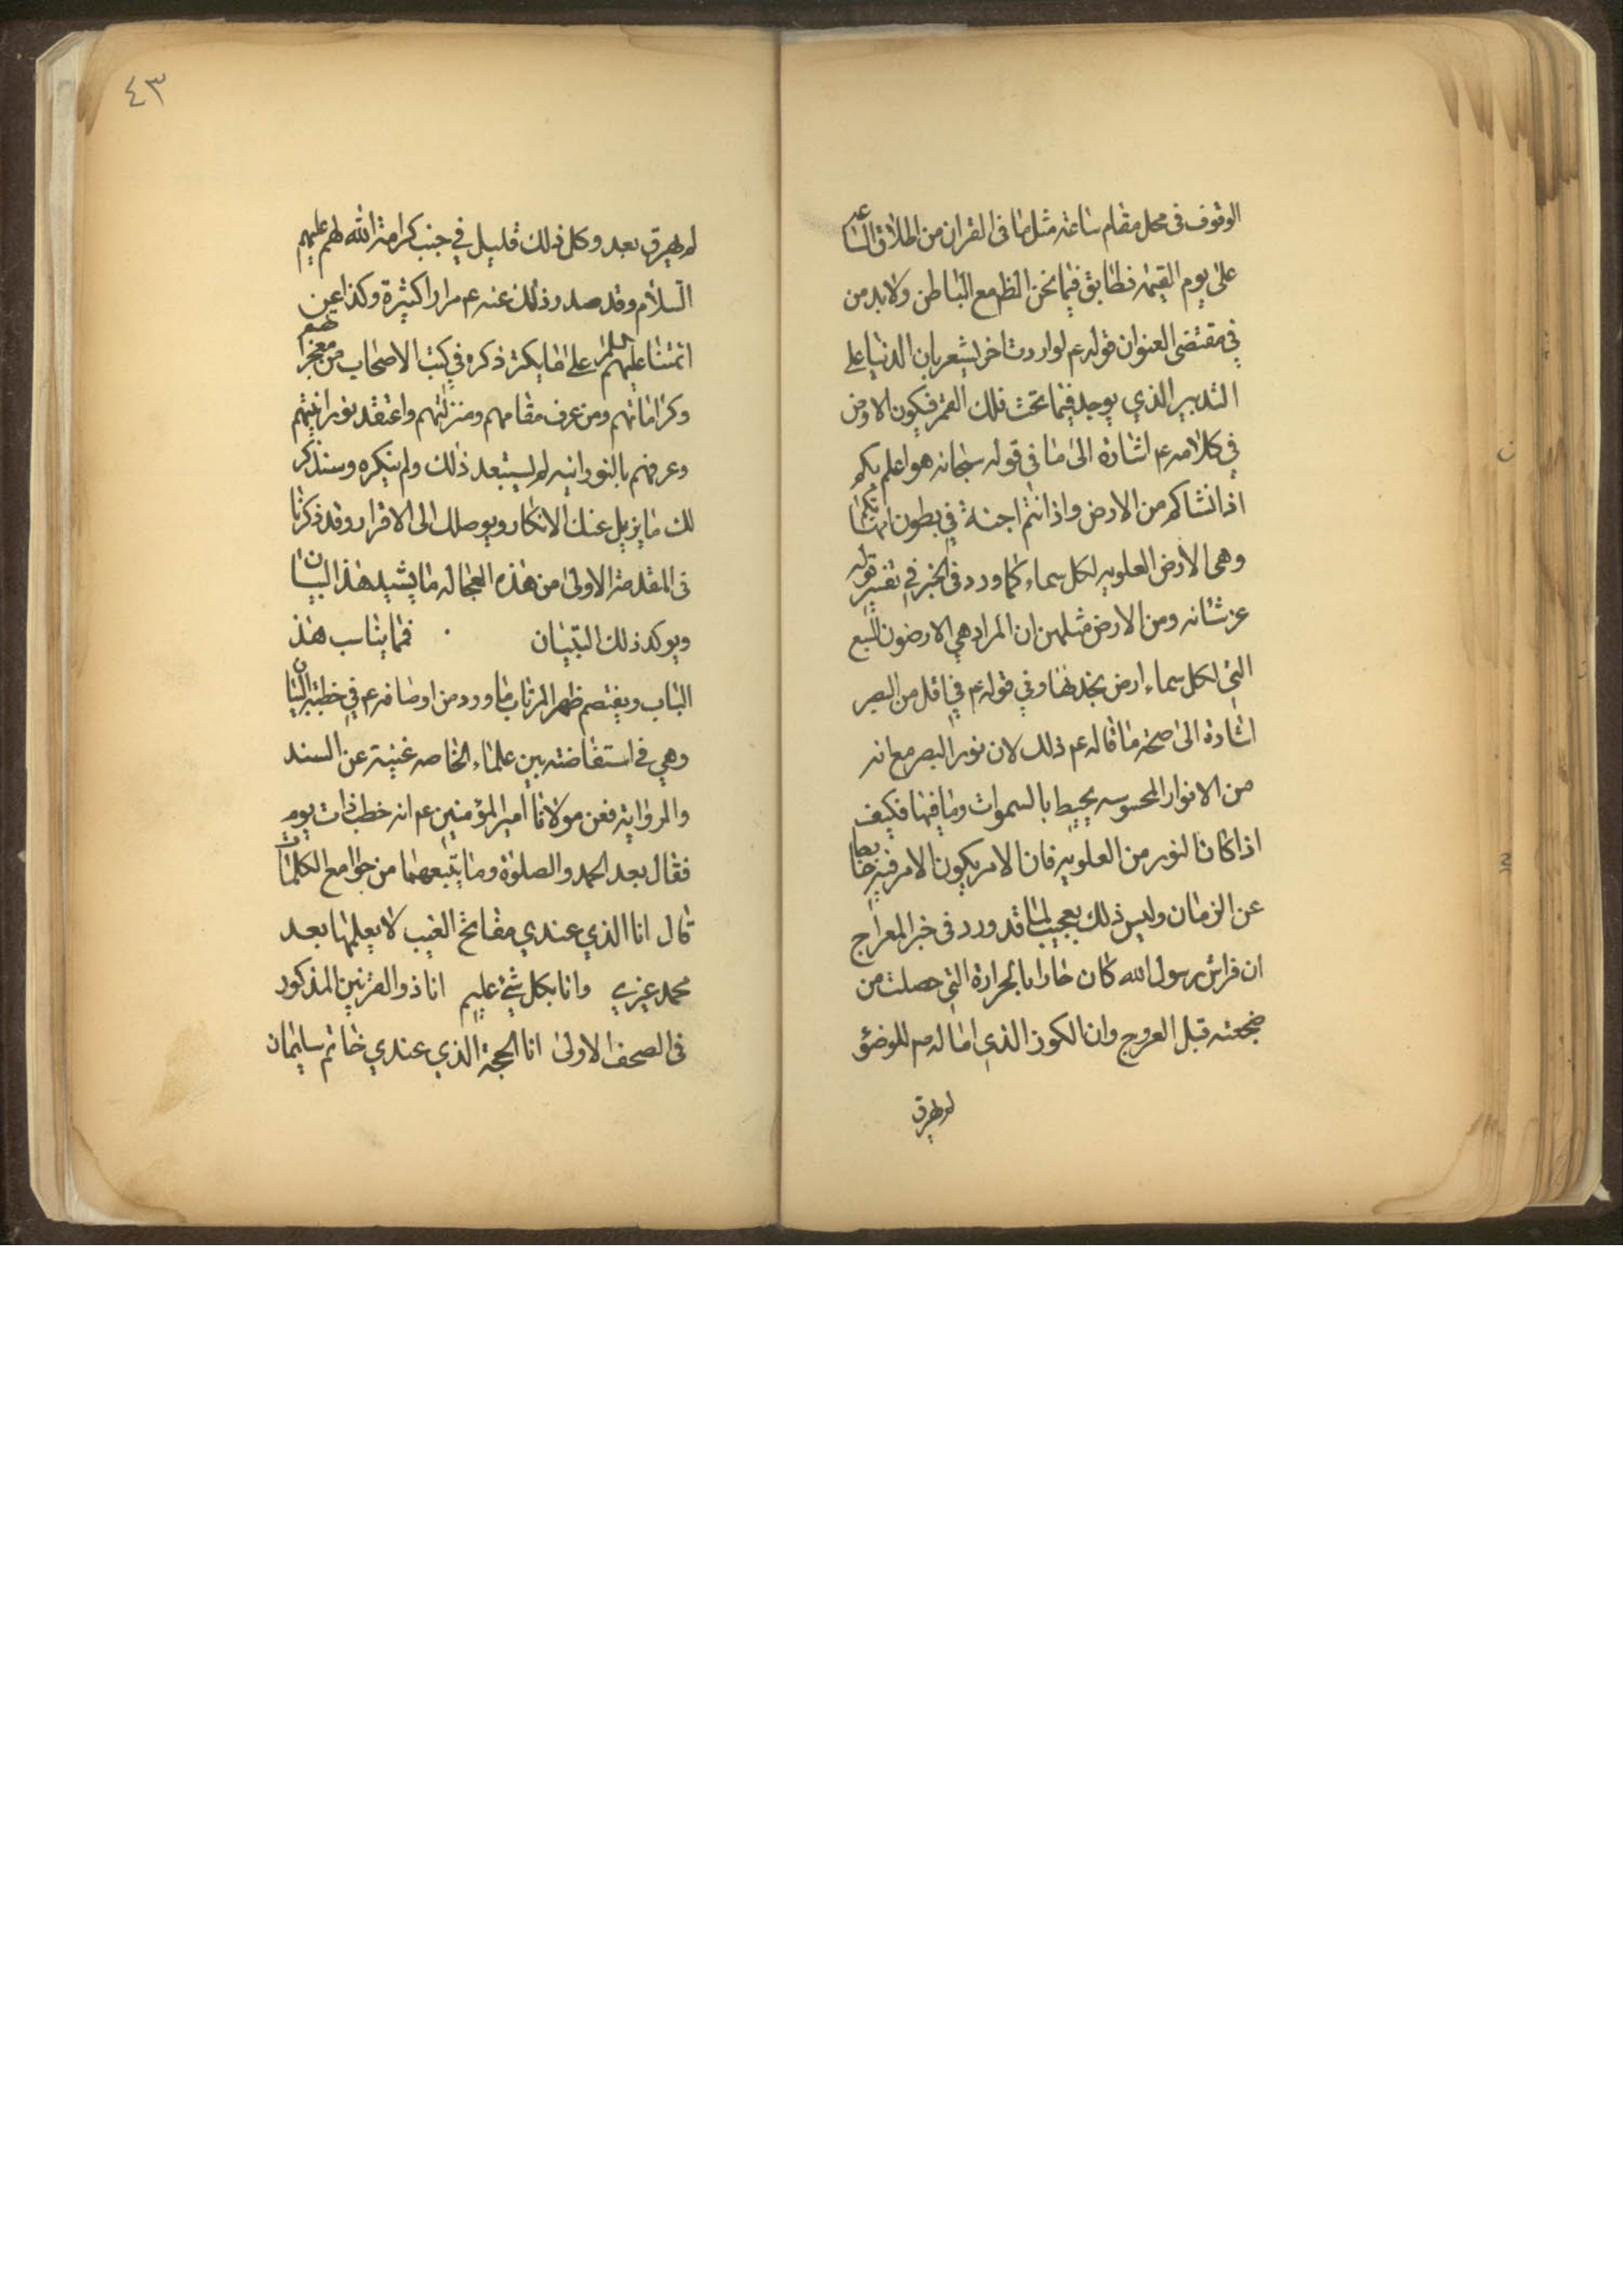 الوقوف فى محل مقام ساعة مثل ما فى القران من اطلاق الساعة
على يوم القيمة فطابق فيما نحن الظهر مع الباطن ولا بد من
في مقتضى العنوان قوله عم لو اردت اخر يشعر بان الدنيا على
التدبير الذي يوجد فيما تحت فلك القمر فيكون الارض
في كلامه عم اشارة الى ما في قوله سبحانه هو اعلم بكم
اذ انشاكم من الارض واذ انتم اجنة في بطون امهاتكم
وهى الأرض العلويه لكل سماء كما ورد فى الخبر في تفسير قوله
عز شانه ومن الارض مثلهن ان المراد هي الارضون السبع
التي لكل سماء ارض وفي قوله عم في اقل من البصر
اشارة الى صحة ما قاله عم ذلك لان نور البصر مع انه
من الانوار المحسوسه يحيط بالسموات وما فيها فكيف
اذا كان النور من العلويه فان الامر يكون الامر فيه خارجا
عن الزمان وليس ذلك بعجيب لما قد ورد فى خبر المعراج
ان فراش رسول الله كان حارا بالحرارة التي حصلت من
ضجعته قبل العروج وان الكوز الذي اماله ص للوضؤ
لم يهرق
٤٣
لم يهرق بعد وكل ذلك قليل في جنب كرامة الله لهم عليهم
السلام وقد صدر وذلك عنه عم مرارا كثيرة وكذا عن
ائمتنا عليهم السلم على ما يكثر ذكره في كتب الاصحاب من معجزاتهم
وكراماتهم ومن عرف مقامهم ومنزلتهم واعتقد نورانيتهم
وعرفهم بالنورانيه لم يستبعد ذلك ولم ينكره وسنذكر
لك ما يزيل عنك الانكار ويوصلك الى الاقرار وقد ذكرنا
فى المقدمة الاولى من هذه العجاله ما يشيد هذا البيان
ويوكد ذلك التبيان فمما يناسب هذ
الباب ويقصم ظهر المرتاب ما ورد من اوصافه عم في خطبة البيان
وهي في استفاضته بين علماء الخاصه غنية عن السند
والرواية فعن مولانا امير المؤمنين عم انه خطب ذات يوم
فقال بعد الحمد والصلوة وما يتبعهما من جوامع الكلمات
قال انا الذي عندي مفاتح الغيب لا يعلمها بعد
محمد غيري وانا بكل شئ عليم انا ذو القرنين المذكور
فى الصحف الاولى انا الحجة الذي عندي خاتم سليمان